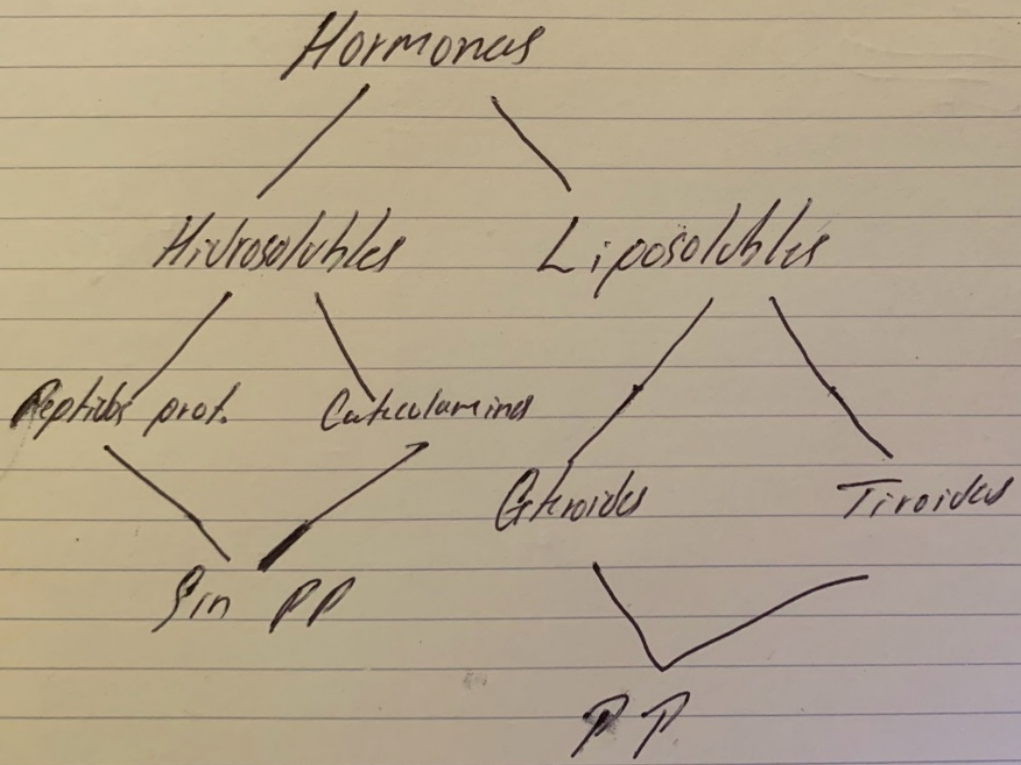 Hormonas
Hidrosolubles Liposolubles
Peptidos prot. Catecolaminas
Esteroides Tiroideas
Sin PP
PP